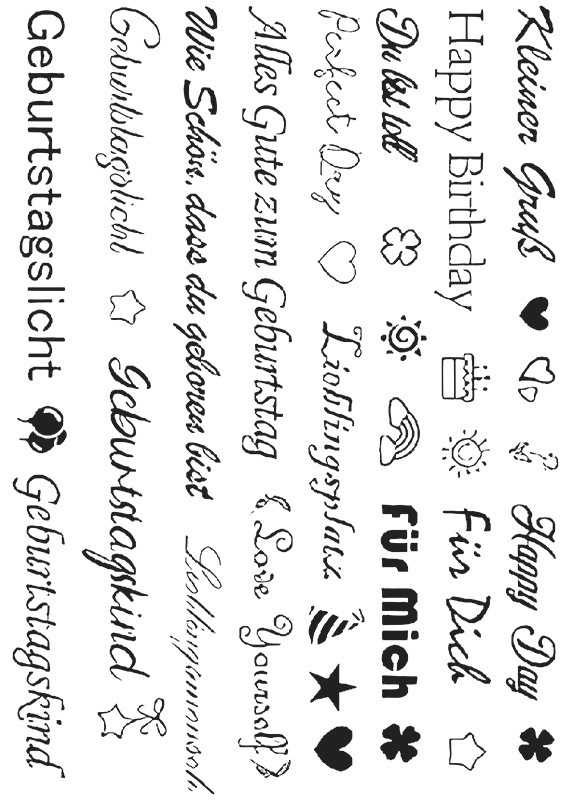 Kleiner Gruß Happy Day
Happy Birthday Für Dich
Du bist toll Für Mich
Perfect Day Lieblingsplatz
Alles Gute zum Geburtstag Love Yourself
Wie Schön, dass du geboren bist Lieblingsmensch
Geburtstagslicht Geburtstagskind
Geburtstagslicht Geburtstagskind